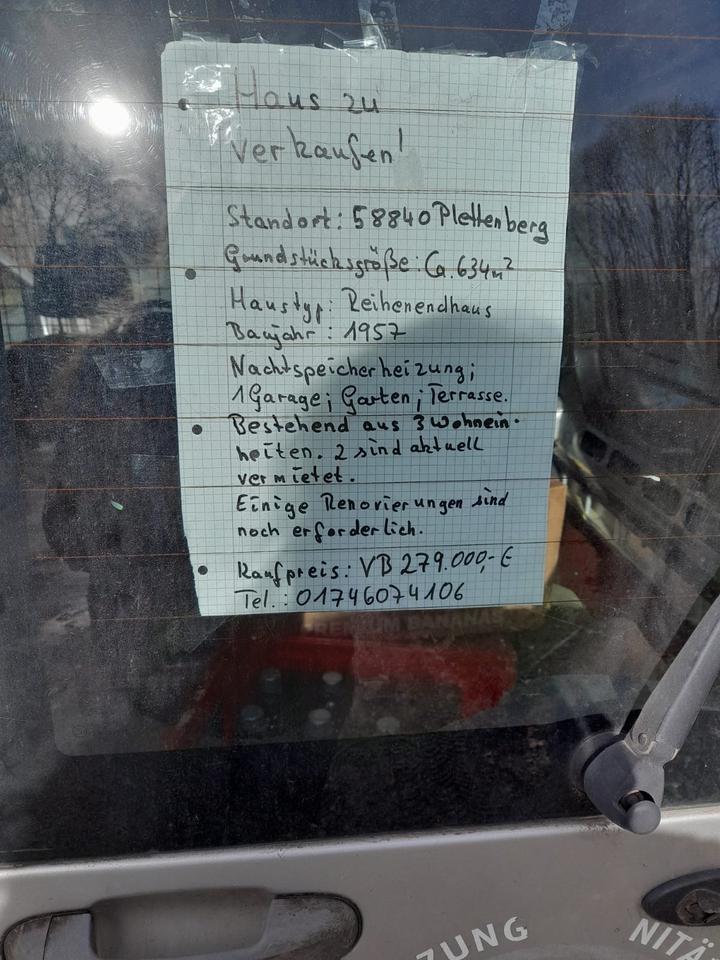 Haus zu
verkaufen!
Standort: 58840 Plettenberg
Grundstücksgröße: Ca. 634m²
Haustyp: Reihenendhaus
Baujahr: 1957
Nachtspeicherheizung;
1 Garage; Garten; Terrasse.
Bestehend aus 3 Wohnein-
heiten. 2 sind aktuell
vermietet.
Einige Renovierungen sind
noch erforderlich.
Kaufpreis: VB 279.000,- €
Tel.: 01746074106
PREMIUM BANANAS
ZUNG
NITÄ